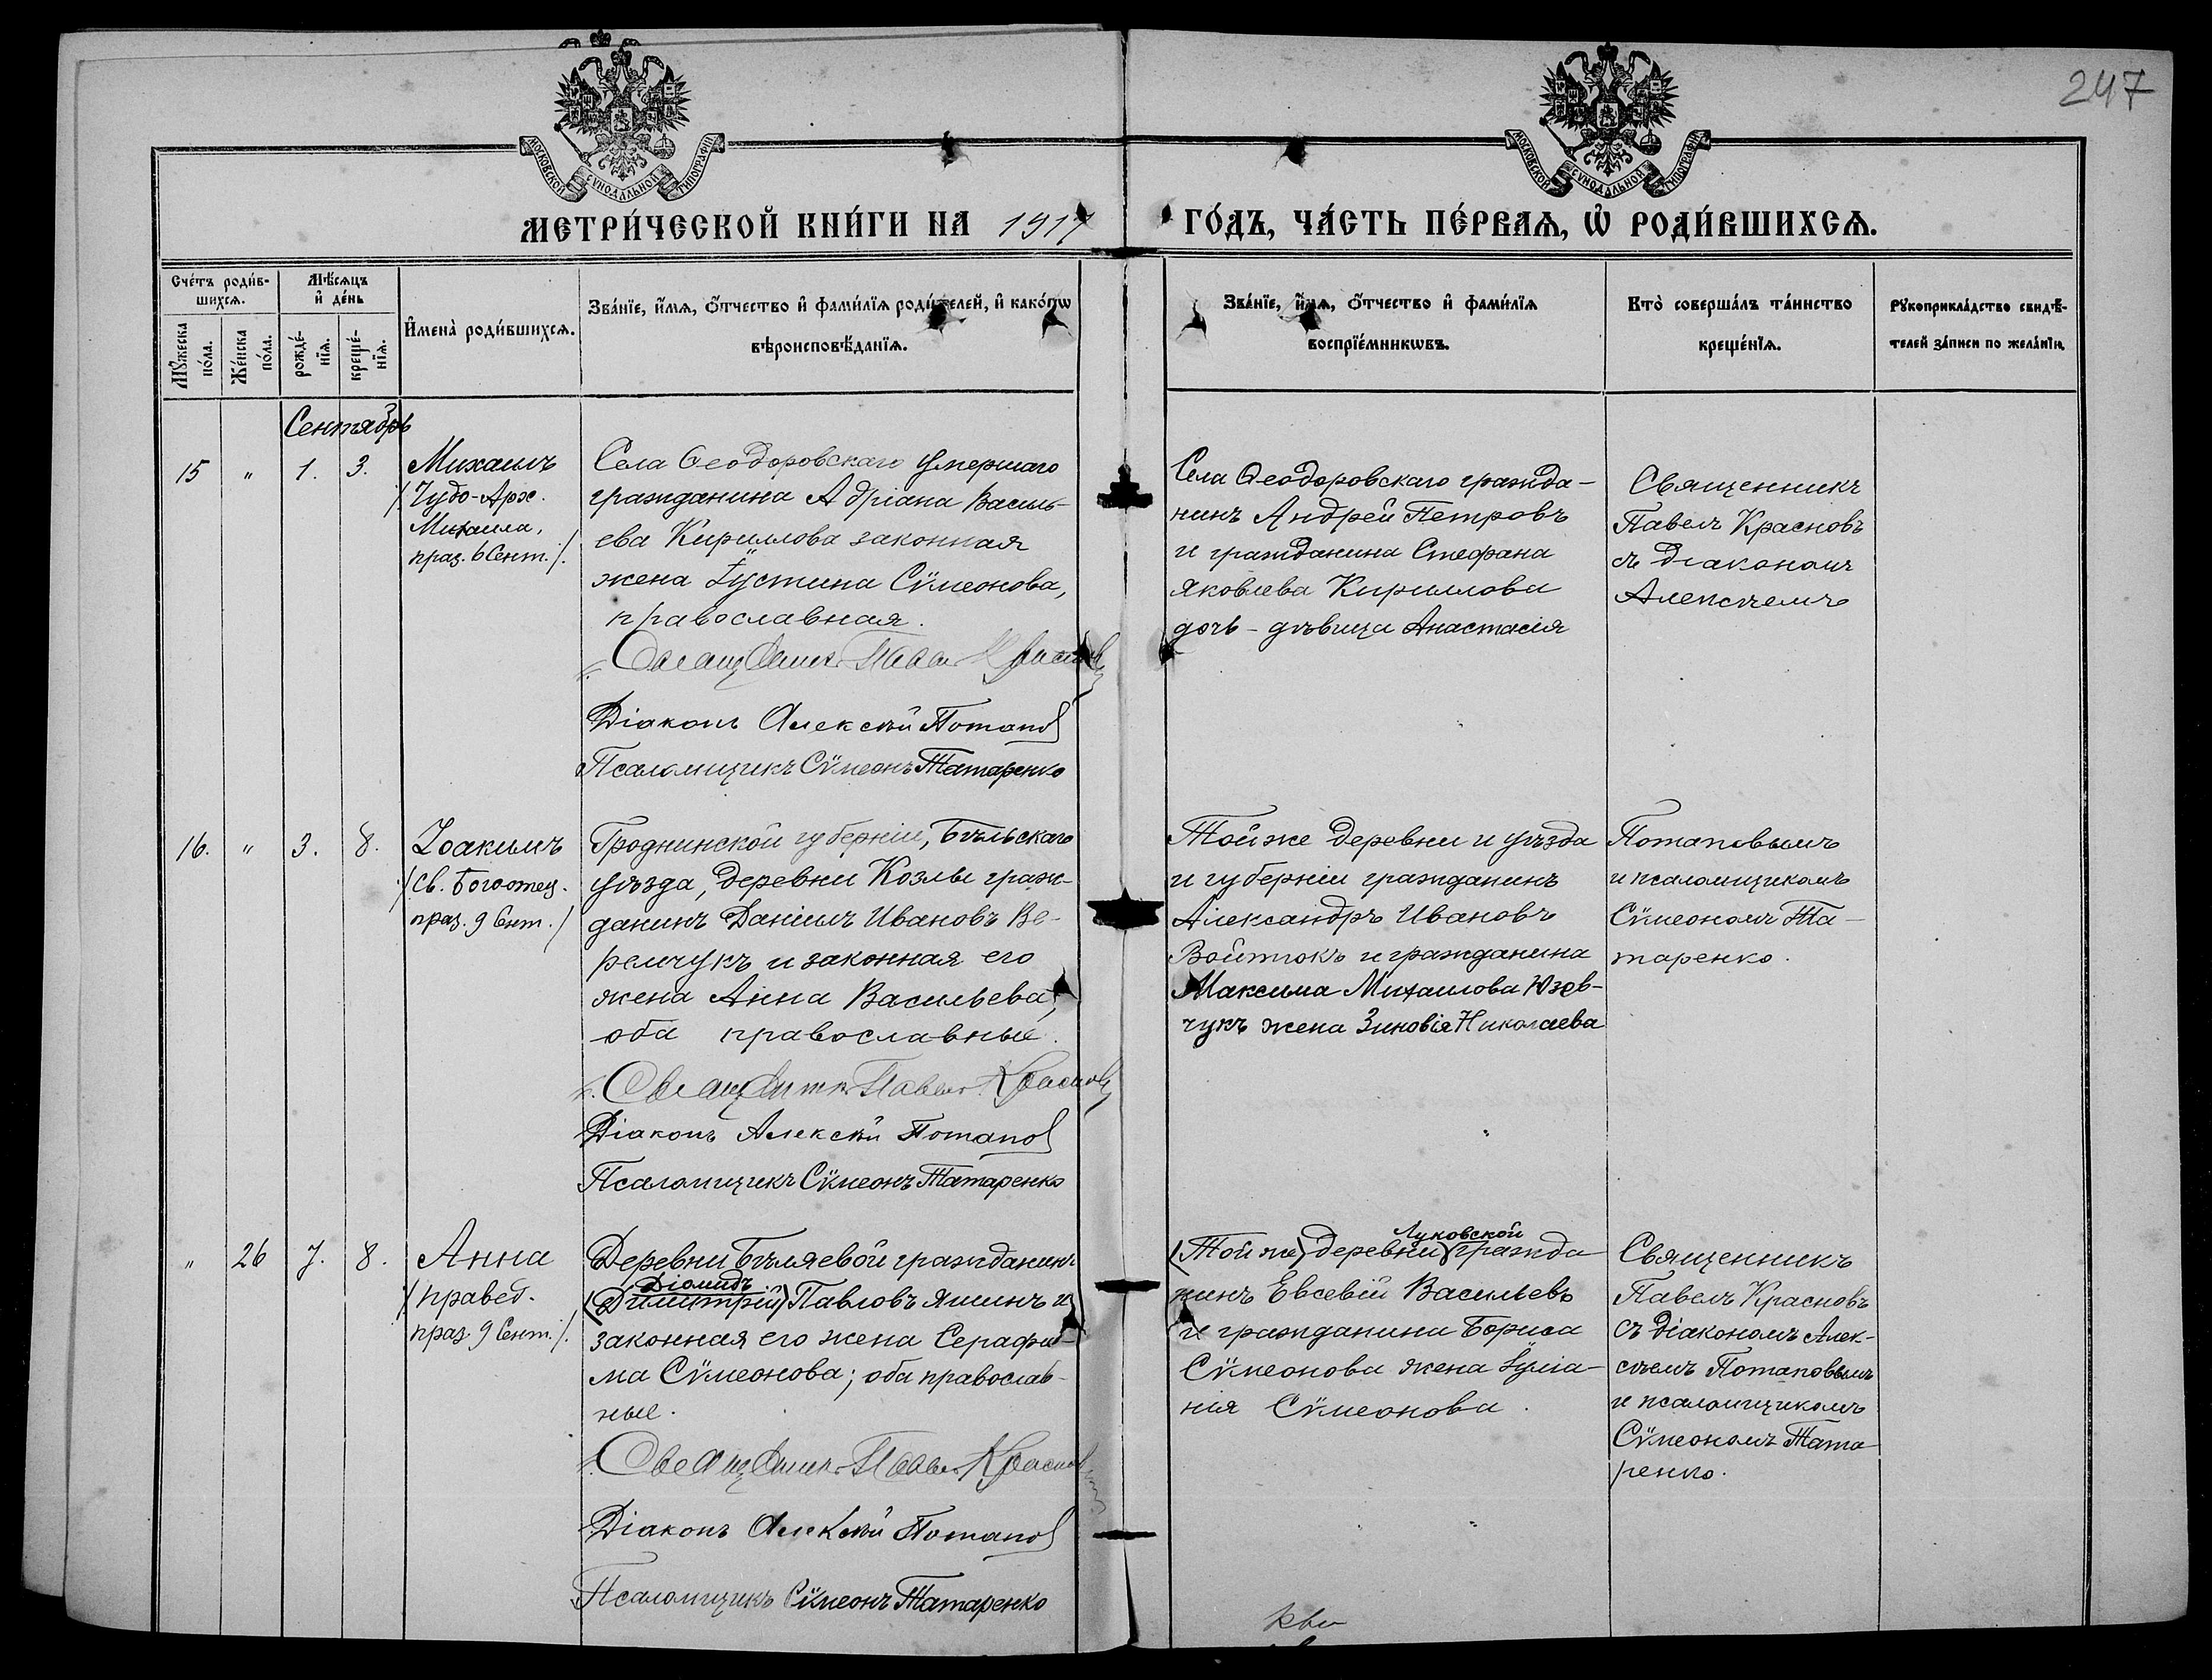 247
МОСКОВСКОЙ СѴНОДАЛЬНОЙ ТИПОГРАФІИ
МОСКОВСКОЙ СѴНОДАЛЬНОЙ ТИПОГРАФІИ
МЕТРИ́ЧЕСКОЙ КНИ́ГИ НА 1917
ГО́ДЪ, ЧА́СТЬ ПЕ́РВАѦ, Ѽ РОДИ́ВШИХСѦ.
Сче́тъ роди́в-
шихсѧ.
Мѣ́сѧцъ
и҆ де́нь
Мꙋ́жеска
по́ла.
Же́нска
по́ла.
рожде́-
нїѧ.
креще́-
нїѧ.
И҆мена̀ роди́вшихсѧ.
Зва́нїе, и҆́мѧ, ѻ҆́тчество и҆ фами́лїѧ роди́телей, и҆ како́гѡ
вѣроисповѣ́данїѧ.
Зва́нїе, и҆́мѧ, ѻ҆́тчество и҆ фами́лїѧ
воспрїе́мникѡвъ.
Кто̀ соверша́лъ та́инство
креще́нїѧ.
Рꙋкоприкла́дство свидѣ́-
телей за́писи по жела́нїю.
Сентябрь
15 " 1. 3.
Михаилъ
/Чудо-Арх.
Михаила,
праз. 6 Сент./.
Села Ѳеодоровскаго умершаго
гражданина Адріана Василь-
ева Кириллова законная
жена Іустина Сѷмеонова,
православная.
Священникъ Павелъ Красновъ
Діаконъ Алексѣй Потапов
Псаломщикъ Сѷмеонъ Татаренко
Села Ѳеодоровскаго гражда-
нинъ Андрей Петровъ
и гражданина Стефана
Яковлева Кириллова
дочь - дѣвица Анастасія
Священникъ
Павелъ Красновъ
съ діакономъ
Алексѣемъ
16. " 3. 8.
Іоакимъ
/св. Богоотец.
праз. 9 Сент./
Гродненской губерніи, Бѣльскаго
уѣзда, деревни Козлы граж-
данинъ Даніилъ Ивановъ Ве-
ремчукъ и законная его
жена Анна Васильева,
оба православные.
Священникъ Павелъ Красновъ
Діаконъ Алексѣй Потапов
Псаломщикъ Сѷмеонъ Татаренко
Той же деревни и уѣзда
и губерніи гражданинъ
Александръ Ивановъ
Войтюкъ и гражданина
Максима Михаилова Юзев-
чукъ жена Зиновія Николаева
Потаповымъ
и псаломщикомъ
Сѷмеономъ Та-
таренко.
" 26 7. 8.
Анна
/правед.
праз. 9 Сент./.
Деревни Бѣляевой гражданинъ
Діомидъ
(Димитрій) Павловъ Яшинъ и
законная его жена Серафи-
ма Сѷмеонова; оба православ-
ные.
Священникъ Павелъ Красновъ
Діаконъ Алексѣй Потапов
Псаломщикъ Сѷмеонъ Татаренко
Луковской
(Той же) деревни) гражда
нинъ Евсевій Васильевъ
и гражданина Бориса
Сѷмеонова жена Іуліа-
нія Сѷмеонова.
Священникъ
Павелъ Красновъ
съ діакономъ Алек-
сѣемъ Потаповымъ
и псаломщикомъ
Сѷмеономъ Тата
ренко.